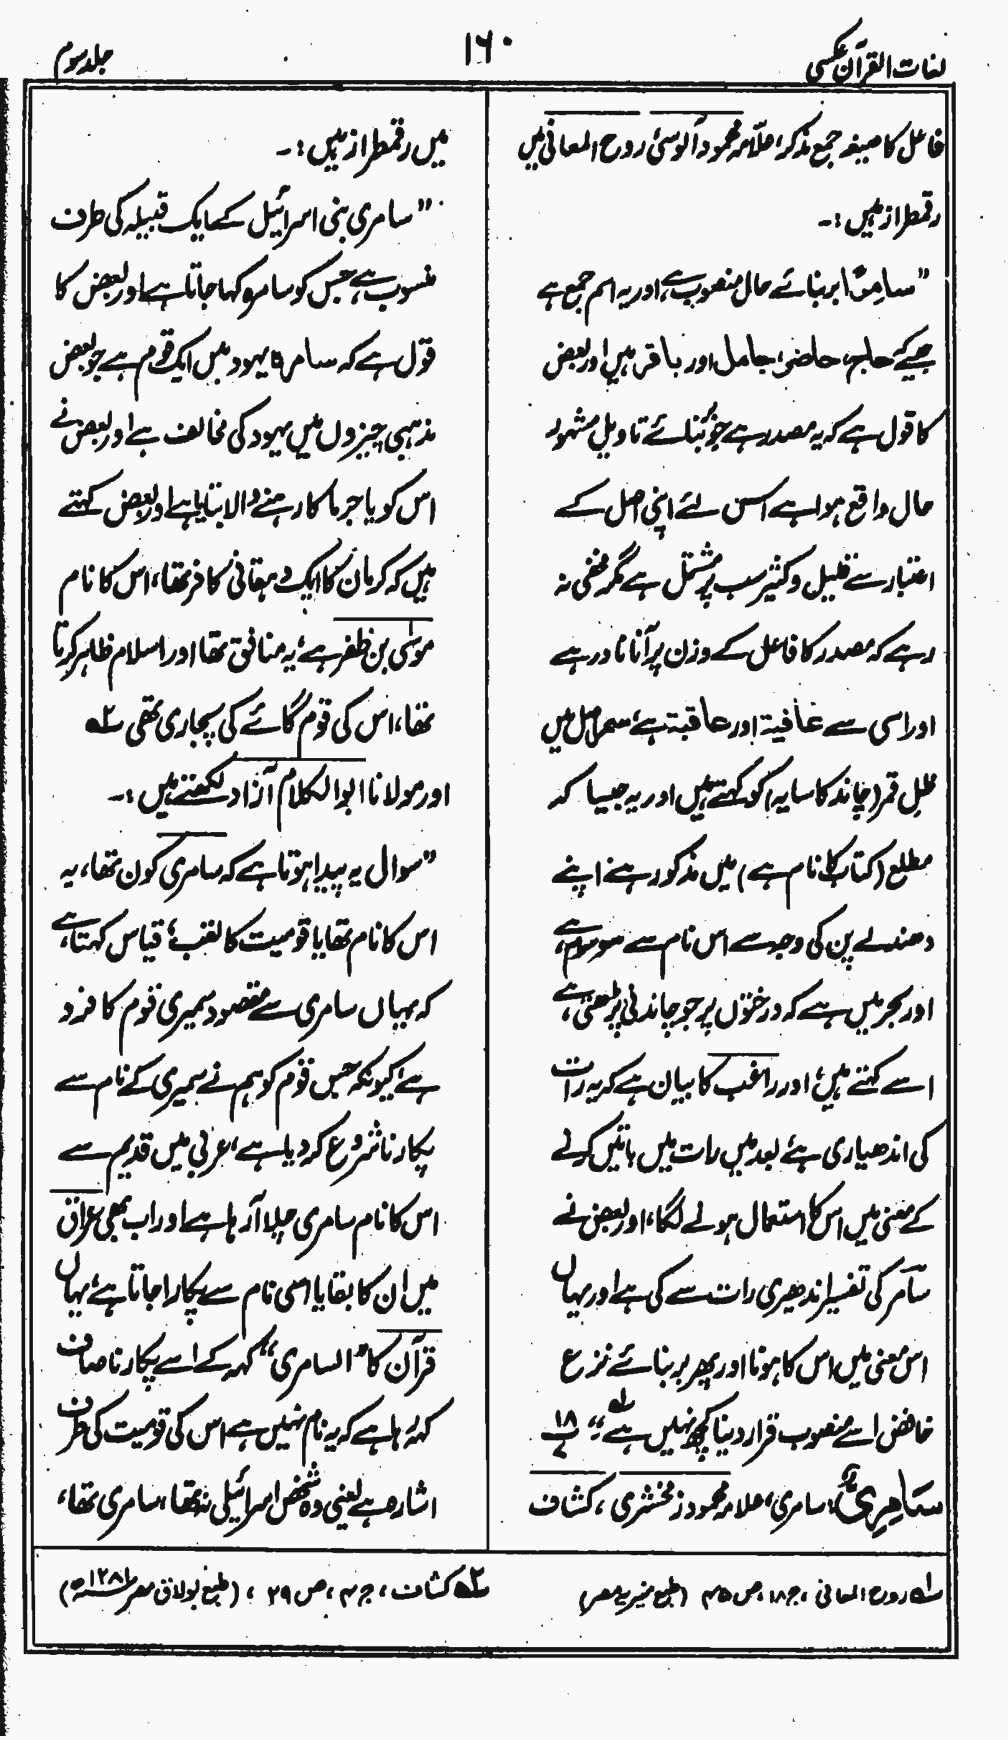 لغات القرآن عکسی
۱۶۰
جلد سوم
فاعل کا صیغہ جمع مذکر، علّامہ محمود آلوسی روح المعانی میں
رقمطراز ہیں :۔
”سامرًا بر بنائے حال منصوب ہے، اور یہ اسم جمع ہے
جیسے کہ حاج، حاضر، جامل اور باقر ہیں اور بعض
کا قول ہے کہ یہ مصدر ہے جو بر بنائے تاویل مشہور
حال واقع ہوا ہے اس لئے اپنی اصل کے
اعتبار سے قلیل و کثیر سب پر مشتمل ہے مگر مخفی نہ
رہے کہ مصدر کا فاعل کے وزن پر آنا نادر ہے
اور اسی سے عافیة اور عاقبة ہے، سمر اصل میں
ظلِ قمر (چاند کا سایہ) کو کہتے ہیں اور یہ جیسا کہ
مطلع (کتاب کا نام ہے) میں مذکور ہے اپنے
دھندلے پن کی وجہ سے اس نام سے موسوم ہے،
اور بحر میں ہے کہ درختوں پر جو چاندنی پڑتی ہے،
اسے کہتے ہیں، اور راغب کا بیان ہے کہ یہ رات
کی اندھیاری ہے بعد میں رات میں باتیں کرنے
کے معنی میں اس کا استعمال ہونے لگا، اور بعض نے
سامر کی تفسیر اندھیری رات سے کی ہے اور یہاں
اس معنی میں اس کا ہونا اور پھر بر بنائے نزع
خافض اسے منصوب قرار دینا کچھ نہیں ہے“ لہ ۱۸
سَامِرِیُّ: سامری، علامہ محمود زمخشری، کشاف
میں رقمطراز ہیں :۔
”سامری بنی اسرائیل کے ایک قبیلہ کی طرف
منسوب ہے جس کو سامرہ کہا جاتا ہے اور بعض کا
قول ہے کہ سامرہ یہود میں ایک قوم ہے جو بعض
مذہبی چیزوں میں یہود کی مخالف ہے اور بعض نے
اس کو باجرما کا رہنے والا بتایا ہے اور بعض کہتے
ہیں کہ کرمان کا ایک دہقانی کافر تھا، اس کا نام
موسیٰ بن ظفر ہے، یہ منافق تھا اور اسلام ظاہر کرتا
تھا، اس کی قوم گائے کی پجاری تھی ۲ہ
اور مولانا ابوالکلام آزاد لکھتے ہیں :۔
”سوال یہ پیدا ہوتا ہے کہ سامری کون تھا، یہ
اس کا نام تھا یا قومیت کا لقب؟ قیاس کہتا ہے،
کہ یہاں سامری سے مقصود سمیری قوم کا فرد
ہے، کیونکہ جس قوم کو ہم نے سمیری کے نام سے
پکارنا شروع کر دیا ہے، عربی میں قدیم سے
اس کا نام سامری چلا آ رہا ہے اور اب بھی عراق
میں ان کا بقایا اسی نام سے پکارا جاتا ہے، یہاں
قرآن کا ”السامری“ کہہ کے اسے پکارنا صاف
کہہ رہا ہے کہ یہ نام نہیں ہے اس کی قومیت کی طرف
اشارہ ہے یعنی وہ شخص اسرائیلی نہ تھا، سامری تھا،
لہ روح المعانی، ج ۱۸، ص ۴۵ (طبع منیریہ مصر)
۲ہ کشاف، ج ۳، ص ۲۹، (طبع بولاق مصر ۱۲۸۱ھ)